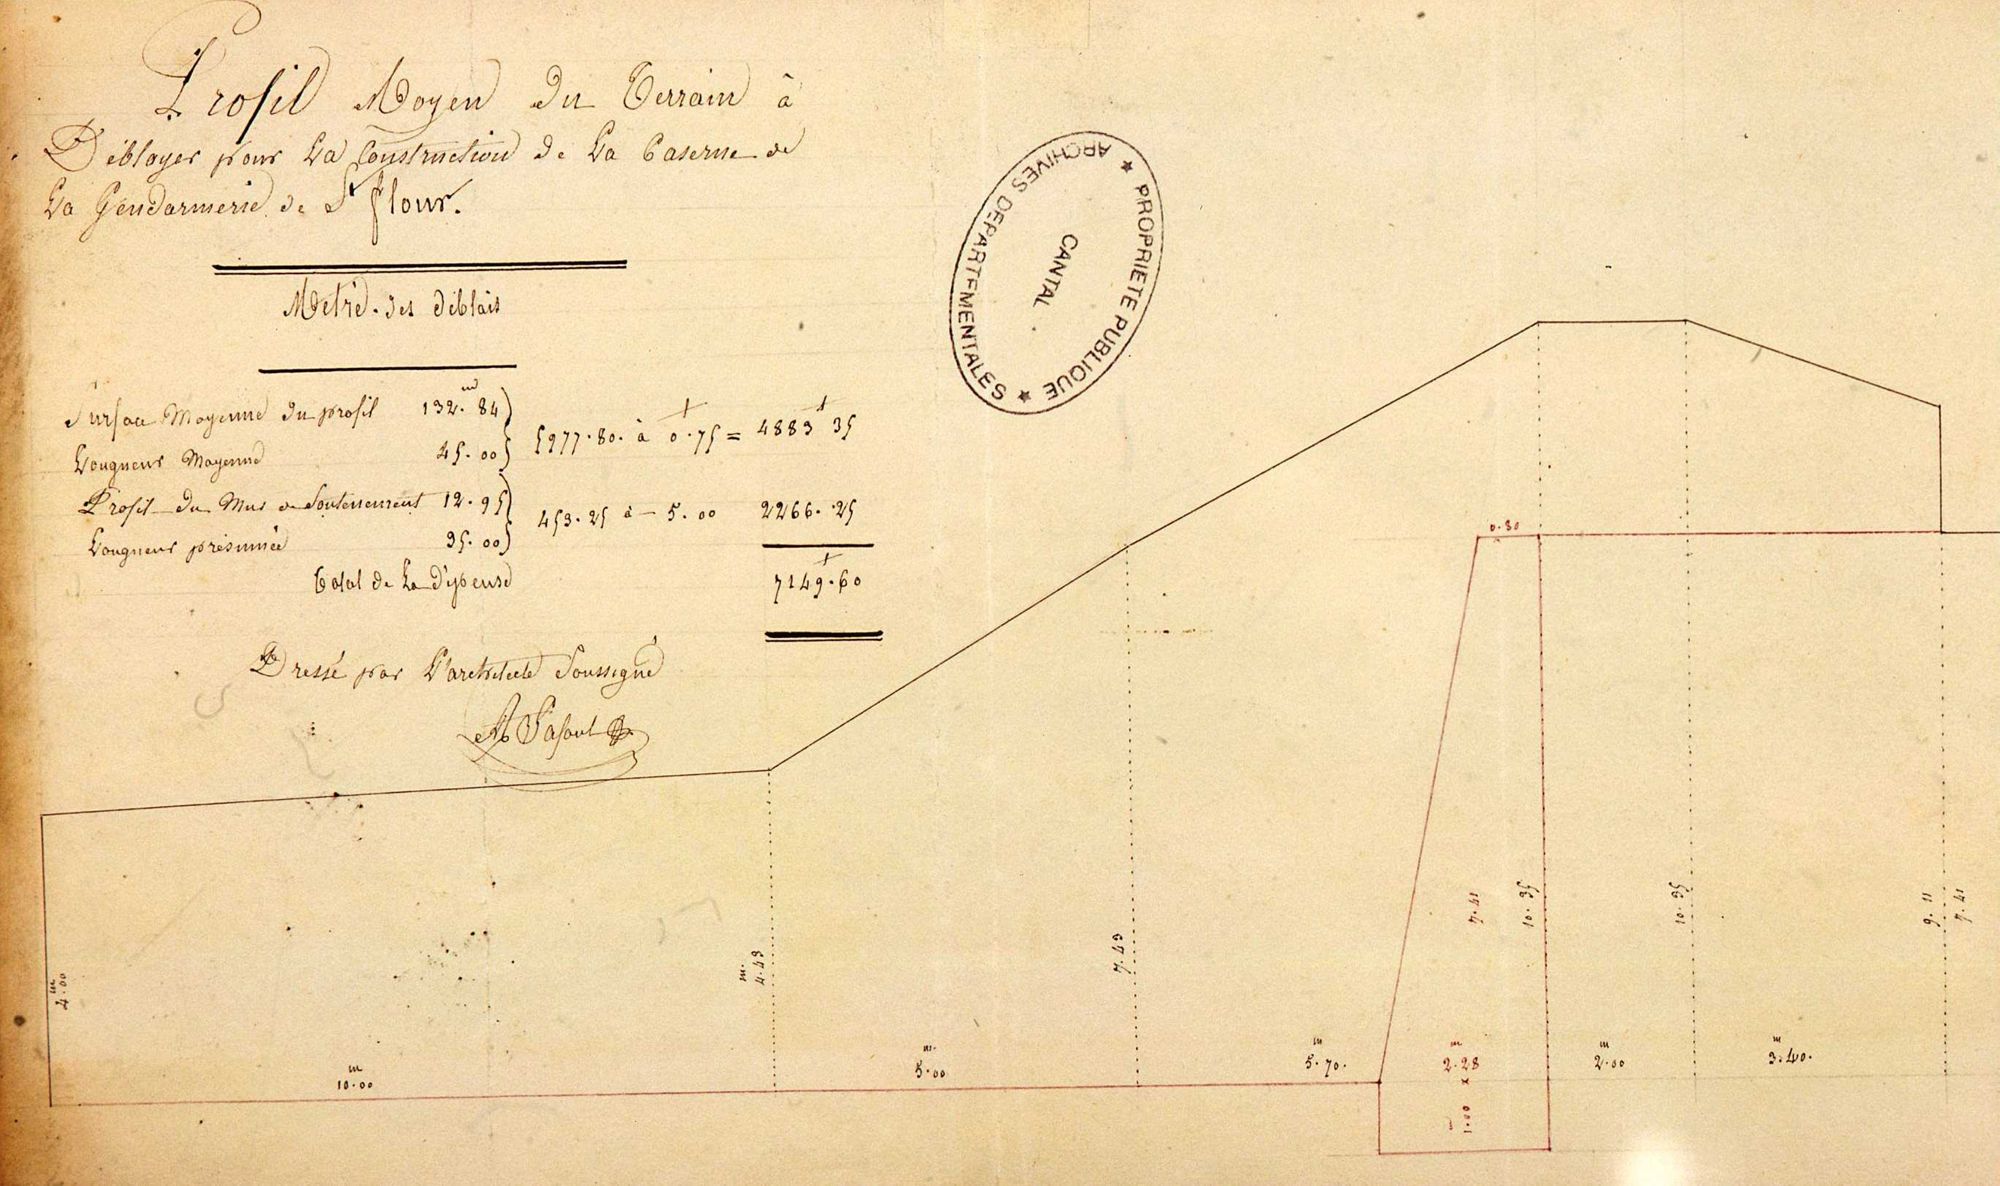 Profil Moyen du Terrain à
Déblayer pour La Construction de La Caserne de
La Gendarmerie de St flour.
Métré des déblais
Surface Moyenne du profil 132.m 84
Longueur Moyenne 45.00
5977.80. à 0.75 = 4883 35
Profil du Mur de Soutenement 12.95
Longueur présumée 35.00
453.25 à 5.00 2266.25
Total de La Dépense 7149.60
Dressé par L'architecte Soussigné
ARCHIVES DEPARTEMENTALES
★ PROPRIETE PUBLIQUE ★
CANTAL
0.80
m 4.00
m. 4.43
7.43
7.41
10.35
10.35
9.11
7.41
m 10.00
m. 5.00
m 5.70.
m 2.28
m 2.00
m 3.40.
1.00